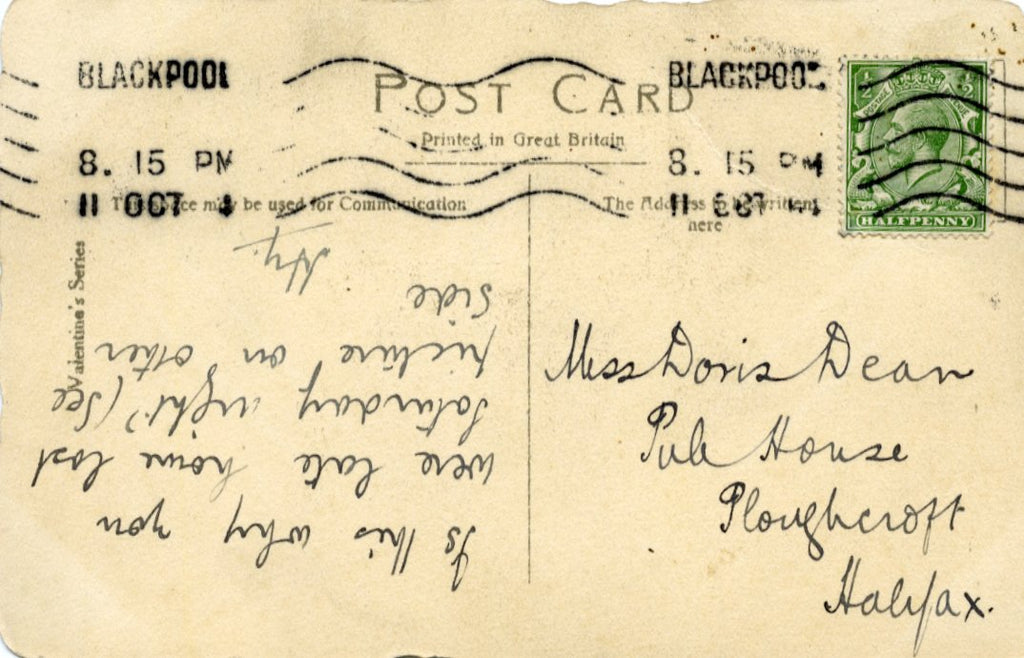 BLACKPOOL
BLACKPOOL
POST CARD
Printed in Great Britain
8. 15 PM
8. 15 PM
11 OCT
11 OCT
This space may be used for Communication
The Address to be written
here
HALFPENNY
Valentine's Series
Is this why you
were late home last
Saturday night? (See
picture on other
side
Hy.
Miss Doris Dean
Pule House
Ploughcroft
Halifax.